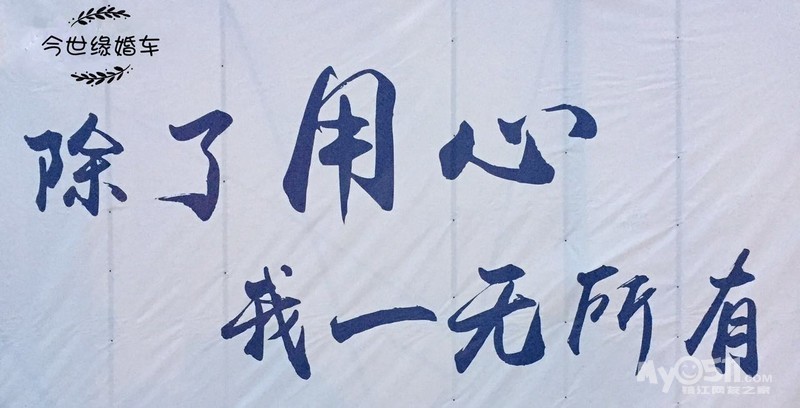 今世缘婚车
除了用心
我一无所有
My0511.COM
镇江网友之家